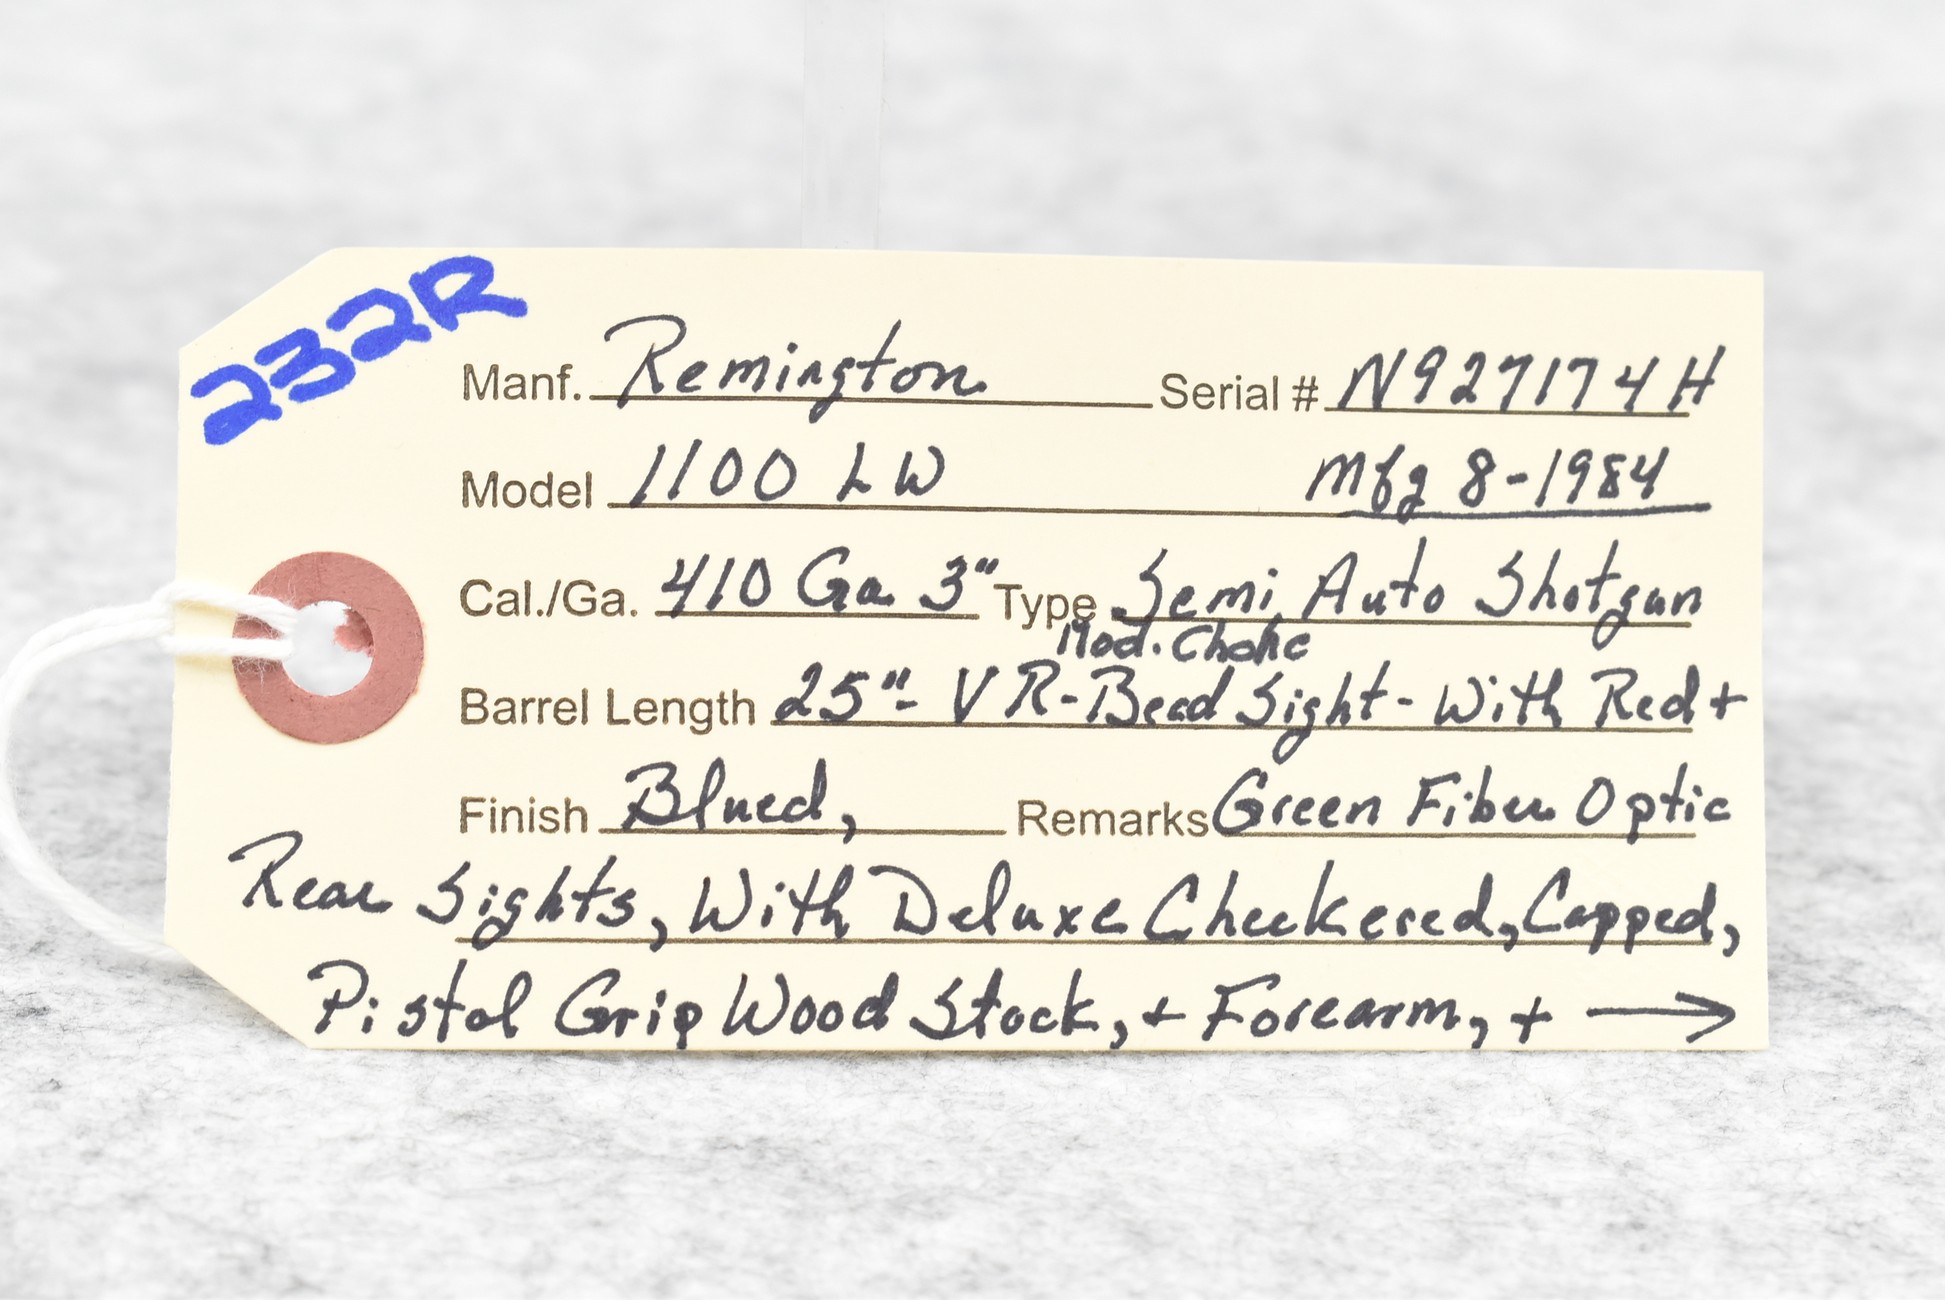 232R
Manf. Remington Serial # N927174H
Model 1100 LW Mfg 8-1984
Cal./Ga. 410 Ga 3" Type Semi Auto Shotgun
Mod. Choke
Barrel Length 25"- VR-Bead Sight - With Red +
Finish Blued, Remarks Green Fiber Optic
Rear Sights, With Deluxe Checkered, Capped,
Pistol Grip Wood Stock, + Forearm, + →